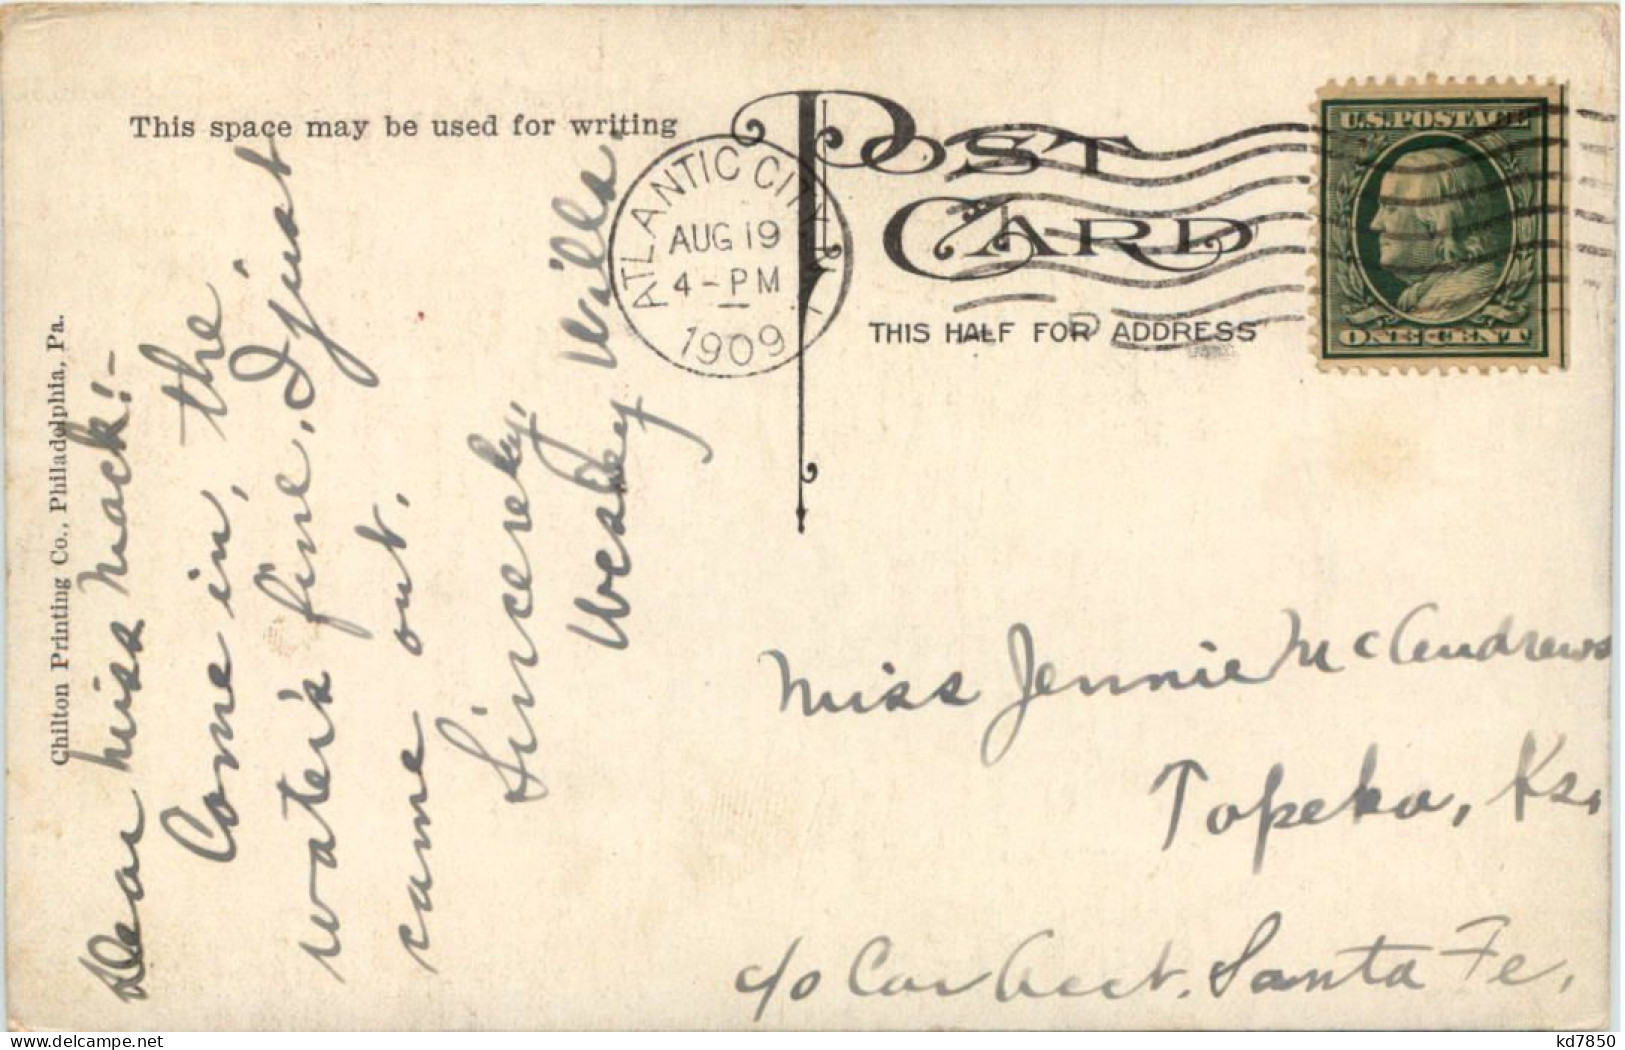 This space may be used for writing
POST
CARD
THIS HALF FOR ADDRESS
ATLANTIC CITY, N.J.
AUG 19
4-PM
1909
U.S. POSTAGE
ONE CENT
Chilton Printing Co., Philadelphia, Pa.
Dear Miss Mack:-
Come in, the
water's fine. I just
came out.
Sincerely,
Wesley Wills.
Miss Jennie McAndrews
Topeka, Ks.
c/o Car Acct. Santa Fe.
kd7850